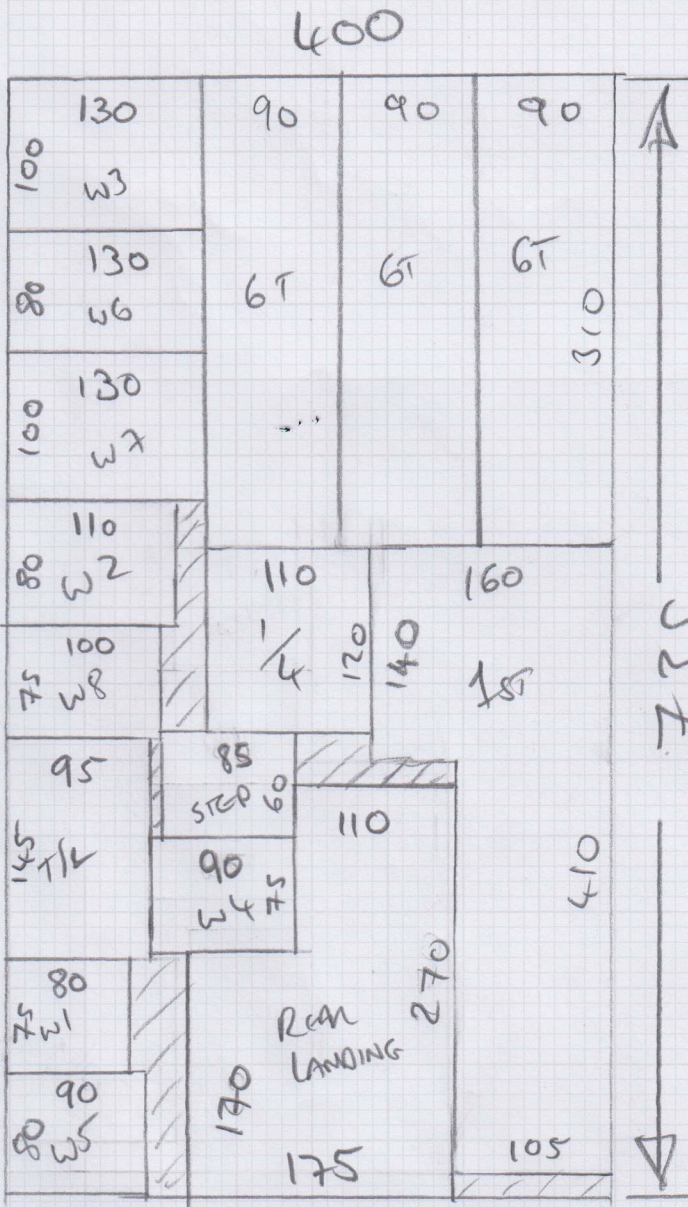 400
130
100
W3
90
90
90
6T
6T
6T
310
130
80
W6
130
100
W7
110
80
W2
110
1/4
120
160
140
1ST
100
75
W8
95
145
T/L
85
STEP
60
110
90
W4
75
410
270
80
75
W1
REAR
LANDING
170
175
90
80
W5
105